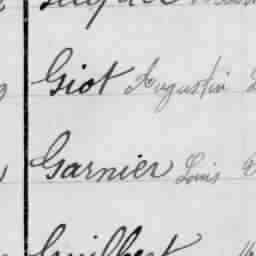 Giot Augustin
Garnier Louis
Guilbert